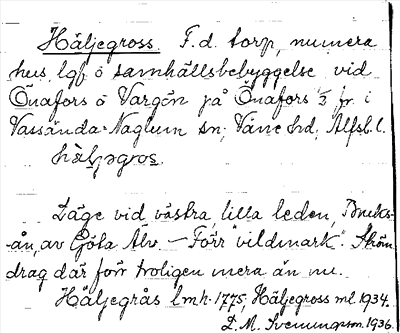 Häljegross. F.d. torp, numera
hus, lgf ö samhällsbebyggelse vid
Önafors ö Vargön på Önafors 1/2 fr. i
Vassända-Naglum sn, Väne hd, Älfsb. l.
Läge vid västra, lilla leden, Bruks-
-ån, av Göta älv. – Förr "vildmark". Ström
drag där förr troligen mera än nu.
Häljegrås lmh. 1775, Häljegross ml. 1934.
D. M. Svenungsson. 1936.